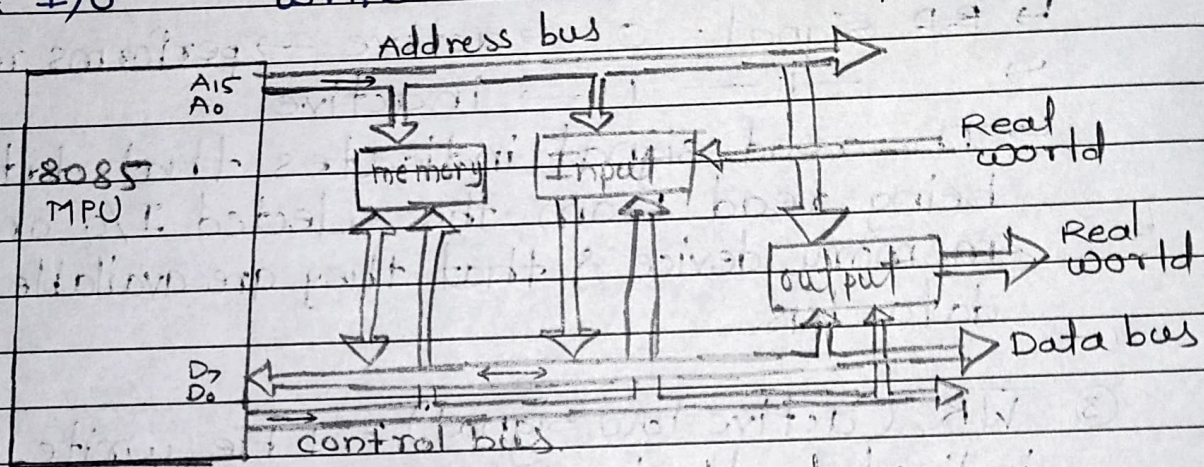 I/O
Address bus
A15
A0
8085
MPU
memory
Input
Real
world
output
Real
world
D7
D0
Data bus
control bus